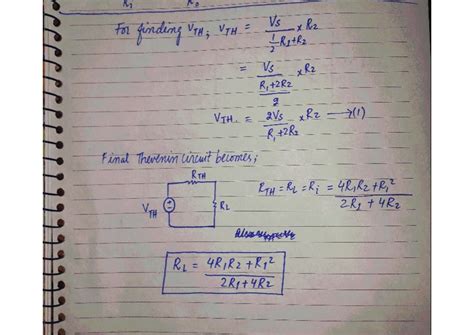 R1 R2
For finding VTH; VTH = Vs / (1/2 R1+R2) × R2
= Vs / ((R1+2R2)/2) × R2
VTH = 2Vs / (R1+2R2) × R2 → (1)
Final Thevenin circuit becomes;
RTH
VTH
RL
RTH = RL = Ri = (4R1R2+R1²) / (2R1+4R2)
RL = (4R1R2 + R1²) / (2R1+4R2)